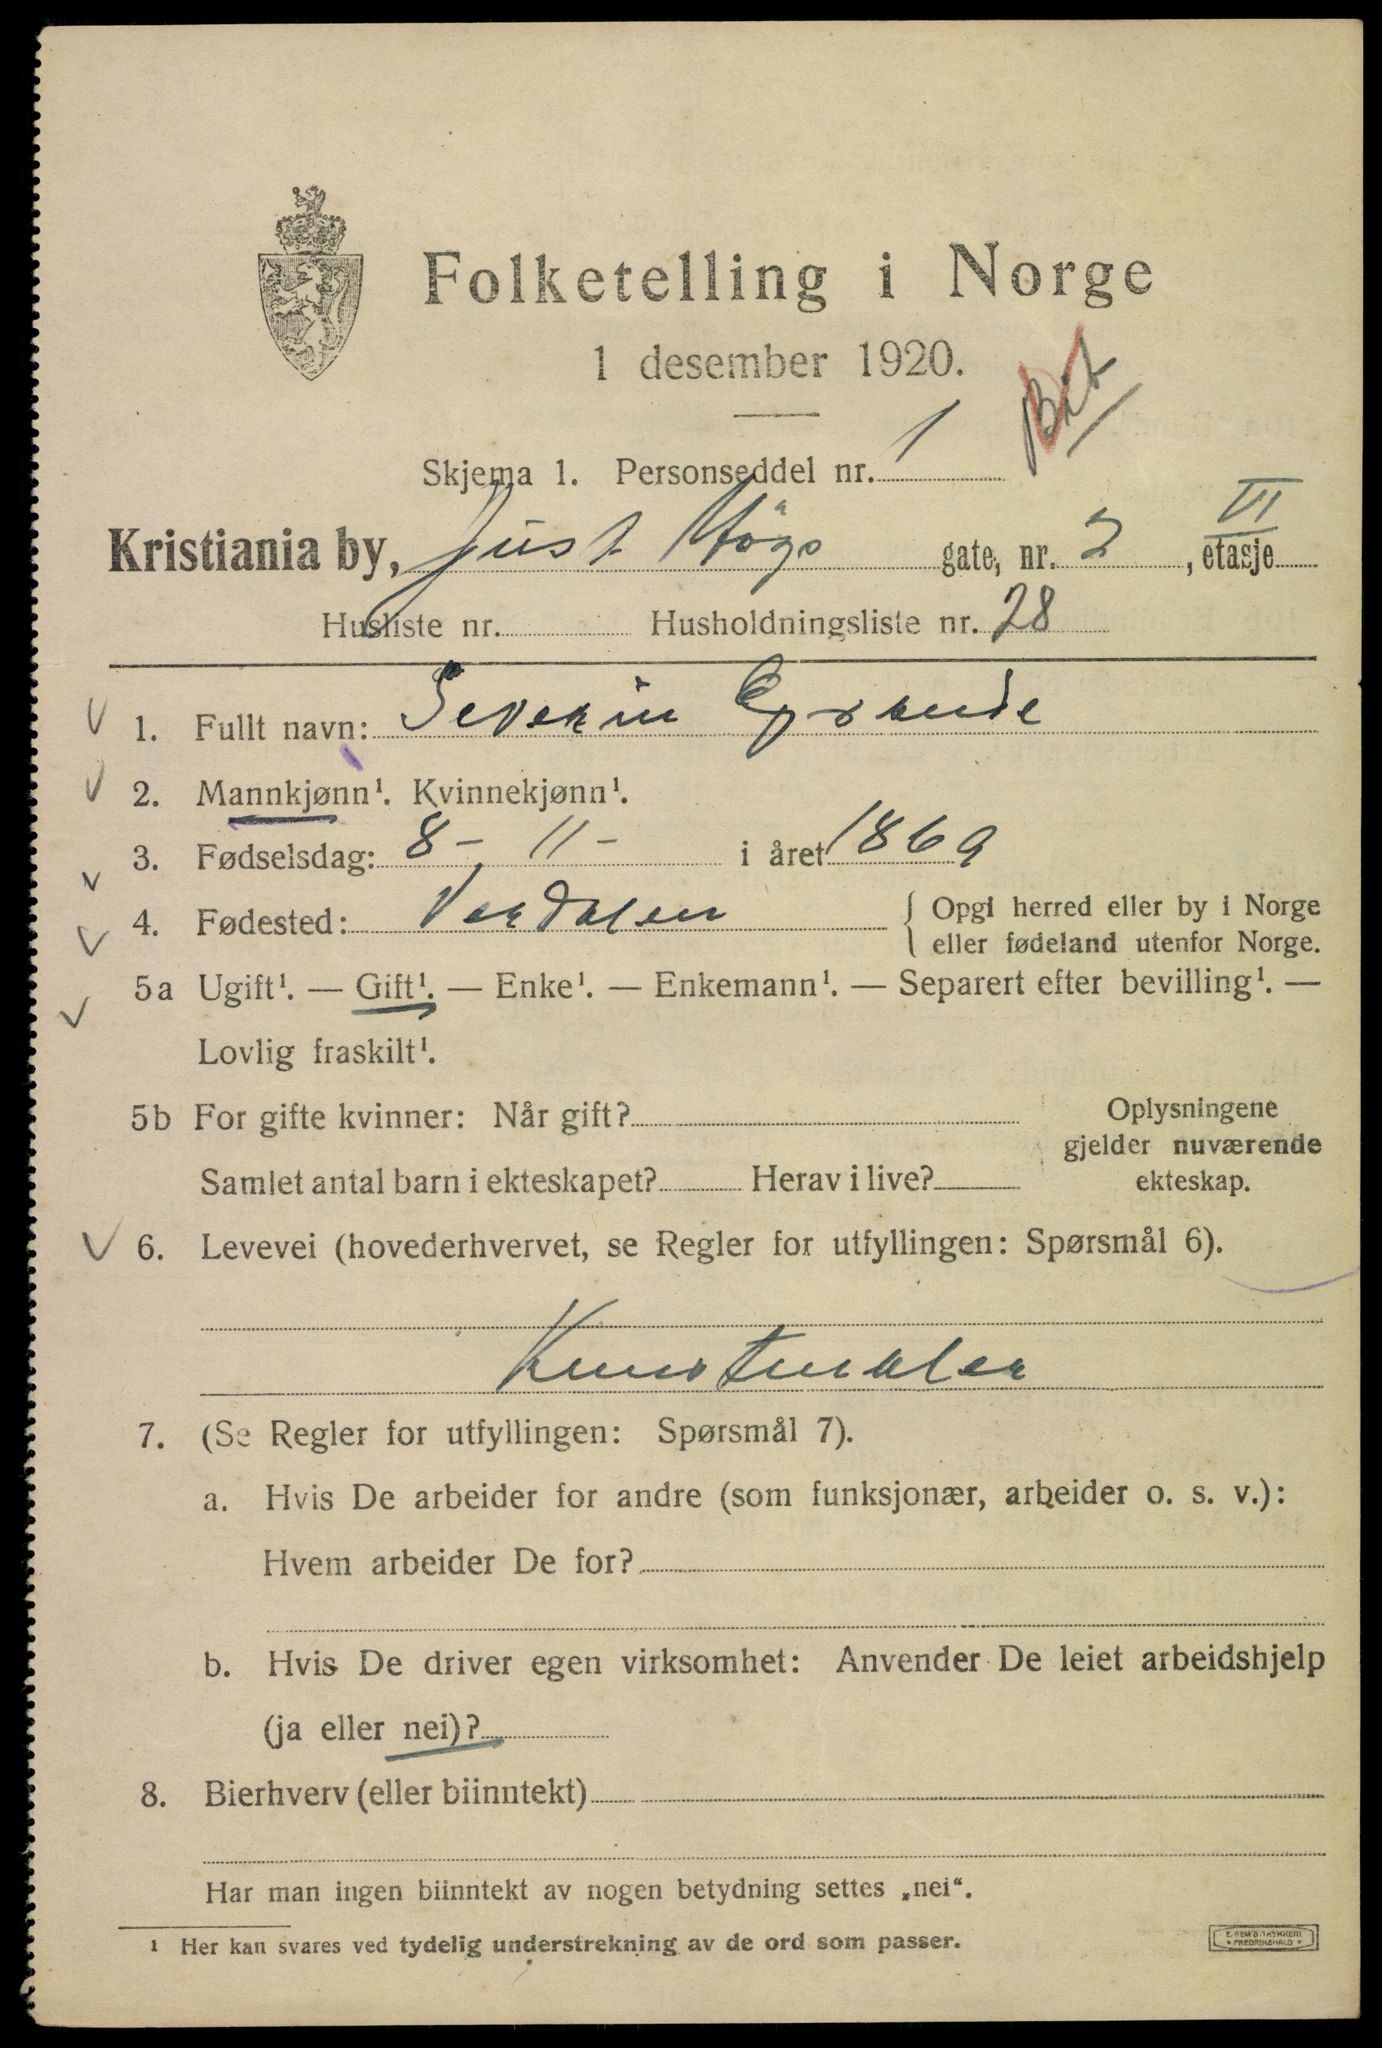 Folketelling i Norge
1 desember 1920.
Skjema 1. Personseddel nr. 1
Kristiania by, Just Högs gate, nr. 2, VI etasje
Husliste nr. Husholdningsliste nr. 28
1. Fullt navn: Severin Grande
2. Mannkjønn¹. Kvinnekjønn¹.
3. Fødselsdag: 8 - 11 - i året 1869
4. Fødested: Verdalen { Opgi herred eller by i Norge
eller fødeland utenfor Norge.
5a Ugift¹. — Gift¹. — Enke¹. — Enkemann¹. — Separert efter bevilling¹. —
Lovlig fraskilt¹.
5b For gifte kvinner: Når gift? Oplysningene
gjelder nuværende
Samlet antal barn i ekteskapet? Herav i live? ekteskap.
6. Levevei (hovederhvervet, se Regler for utfyllingen: Spørsmål 6).
Kunstmaler
7. (Se Regler for utfyllingen: Spørsmål 7).
a. Hvis De arbeider for andre (som funksjonær, arbeider o. s. v.):
Hvem arbeider De for?
b. Hvis De driver egen virksomhet: Anvender De leiet arbeidshjelp
(ja eller nei)?
8. Bierhverv (eller biinntekt)
Har man ingen biinntekt av nogen betydning settes „nei“.
¹ Her kan svares ved tydelig understrekning av de ord som passer.